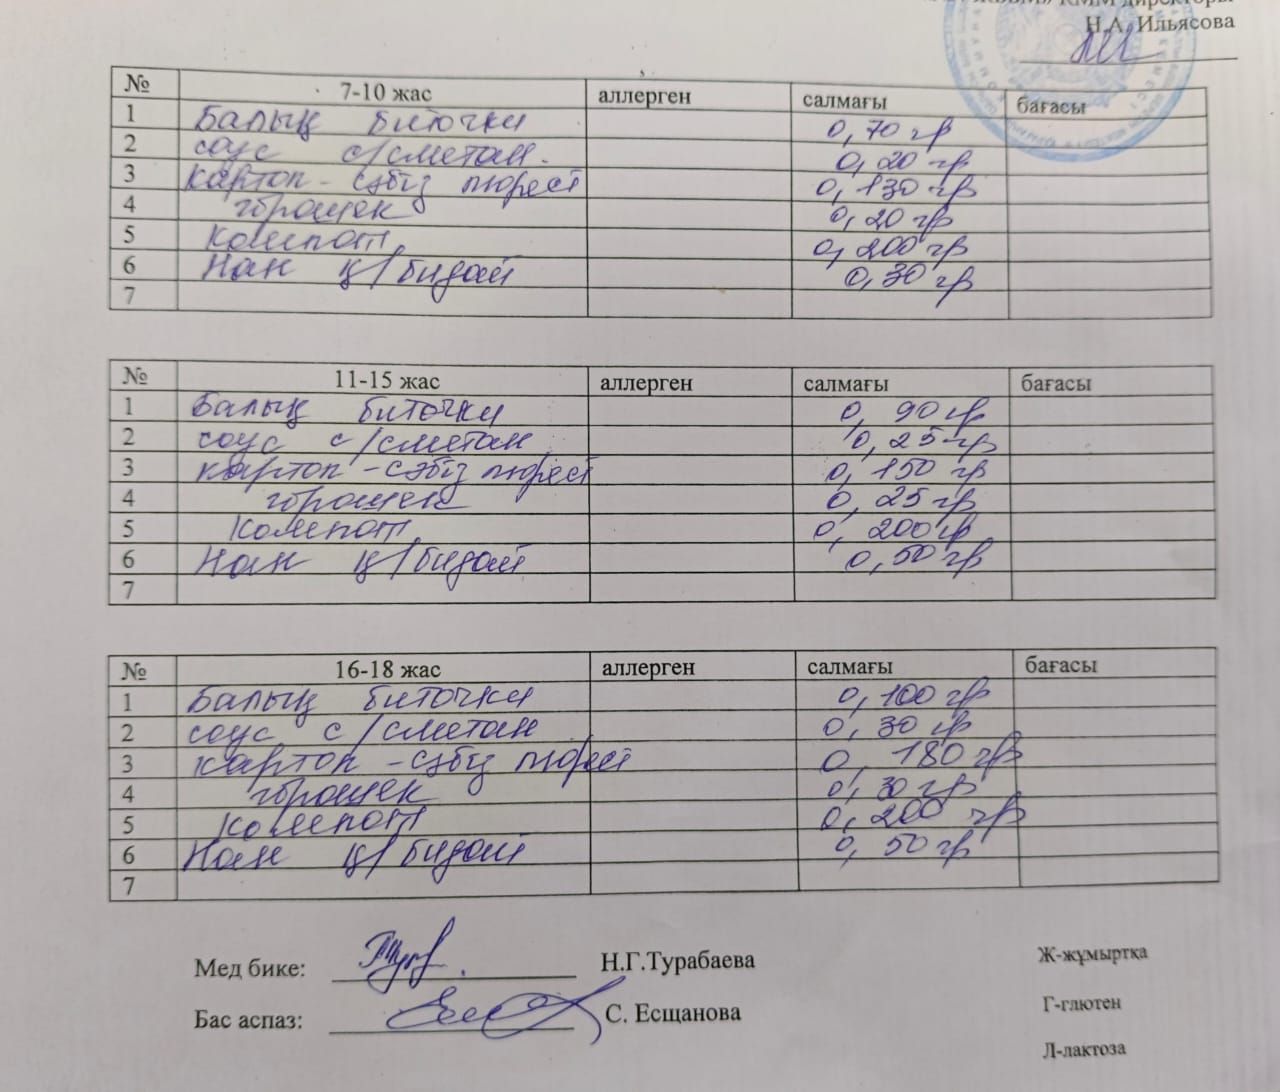 КММ директоры
Н.А. Ильясова
№ 7-10 жас аллерген салмағы бағасы
1 Балық биточки 0,70 гр
2 соус с/сметан. 0,20 гр
3 картоп-сәбіз пюресі 0,130 гр
4 горошек 0,20 гр
5 Компот 0,200 гр
6 Нан қ/бидай 0,30 гр
7
№ 11-15 жас аллерген салмағы бағасы
1 Балық биточки 0,90 гр
2 соус с/сметан 0,25 гр
3 картоп-сәбіз пюресі 0,150 гр
4 горошек 0,25 гр
5 Компот 0,200 гр
6 Нан қ/бидай 0,50 гр
7
№ 16-18 жас аллерген салмағы бағасы
1 Балық биточки 0,100 гр
2 соус с/сметан 0,30 гр
3 картоп-сәбіз пюресі 0,180 гр
4 горошек 0,30 гр
5 Компот 0,200 гр
6 Нан қ/бидай 0,50 гр
7
Мед бике: Н.Г.Турабаева
Бас аспаз: С. Есщанова
Ж-жұмыртқа
Г-глютен
Л-лактоза